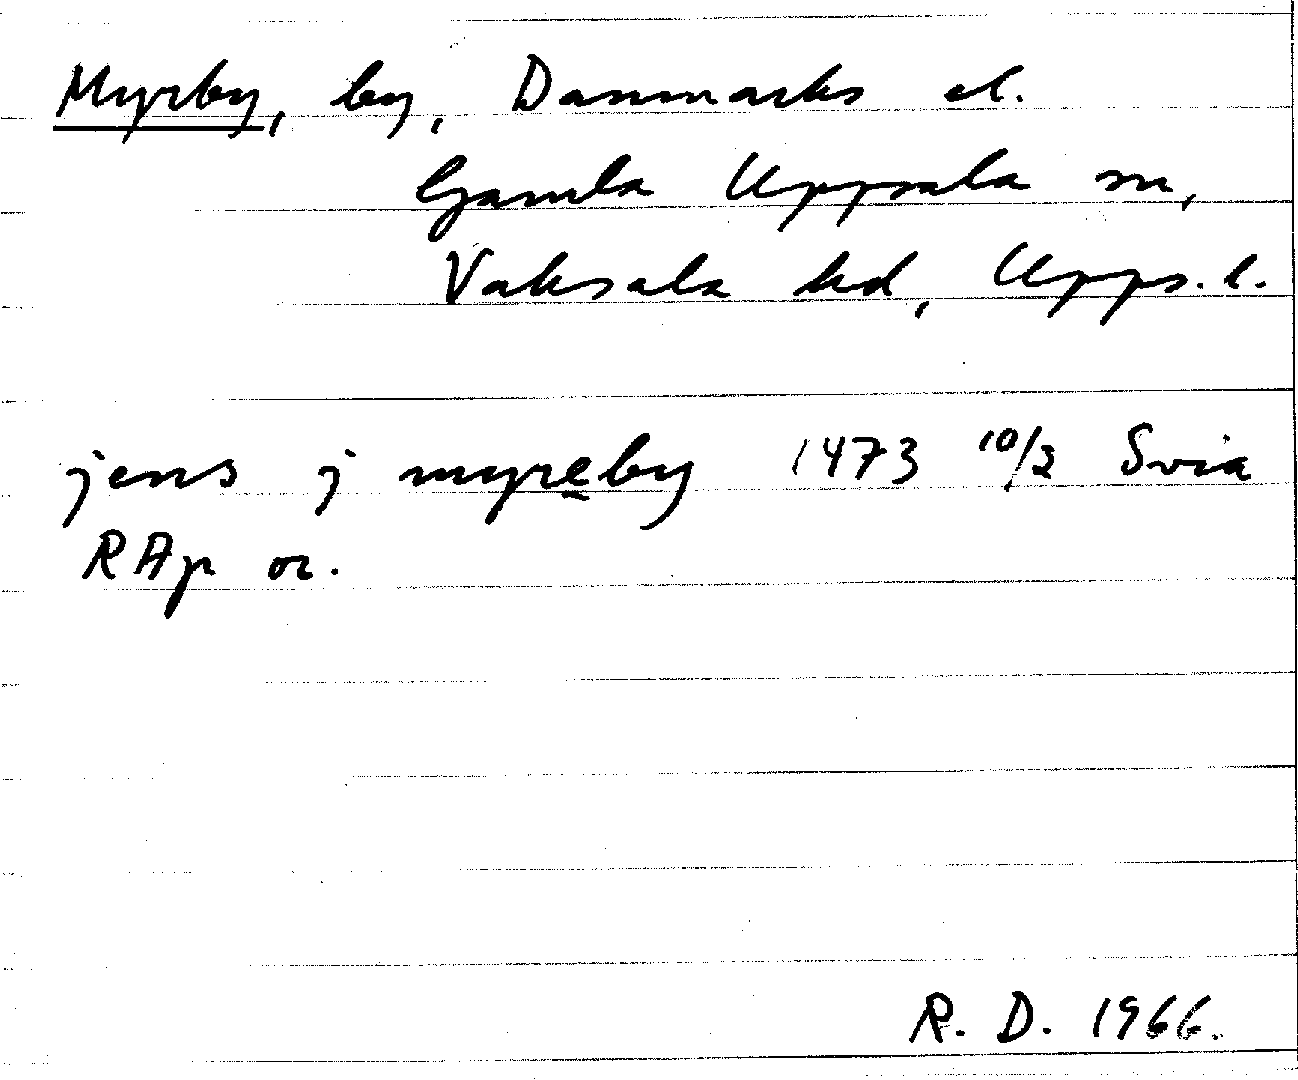 Myrby, by, Danmarks el.
Gamla Uppsala sn,
Vaksala hd, Upps. l.
jens j myreby 1473 10/2 Svia
RAp or.
R. D. 1966.